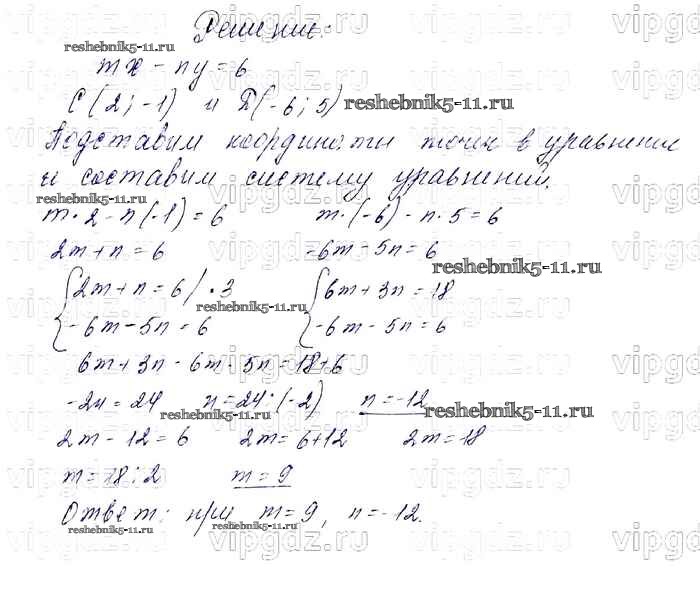 Решение:
reshebnik5-11.ru
mx - ny = 6
C(2; -1) и D(-6; 5) reshebnik5-11.ru
Подставим координаты точек в уравнения
и составим систему уравнений.
reshebnik5-11.ru
m·2 - n(-1) = 6 m·(-6) - n·5 = 6
2m + n = 6 -6m - 5n = 6
reshebnik5-11.ru
{2m + n = 6 / ·3 {6m + 3n = 18
reshebnik5-11.ru
-6m - 5n = 6 -6m - 5n = 6
6m + 3n - 6m - 5n = 18 + 6
-2n = 24 n = 24 : (-2) n = -12
reshebnik5-11.ru reshebnik5-11.ru
2m - 12 = 6 2m = 6 + 12 2m = 18
m = 18 : 2 m = 9
reshebnik5-11.ru reshebnik5-11.ru
Ответ: при m = 9, n = -12.
reshebnik5-11.ru reshebnik5-11.ru
vipgdz.ru vipgdz.ru vipgdz.ru vipgdz.ru